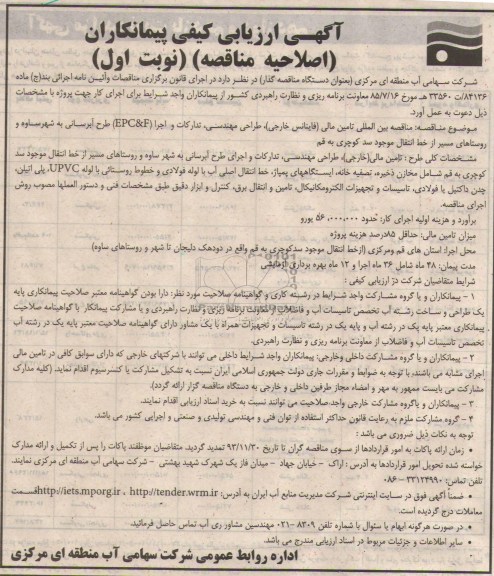 آگهی ارزیابی کیفی پیمانکاران
(اصلاحیه مناقصه) (نوبت اول)
شرکت سهامی آب منطقه ای مرکزی (بعنوان دستگاه مناقصه گذار) در نظر دارد در اجرای قانون برگزاری مناقصات وآئین نامه اجرائی بند(ج) ماده
۸۴۱۳۶/ت ۳۳۵۶۰ هـ مورخ ۸۵/۷/۱۶ معاونت برنامه ریزی و نظارت راهبردی کشور از پیمانکاران واجد شرایط برای اجرای کار جهت پروژه با مشخصات
ذیل دعوت به عمل آورد.
موضوع مناقصه: مناقصه بین المللی تامین مالی (فاینانس خارجی)، طراحی مهندسی، تدارکات و اجرا (EPC&F) طرح آبرسانی به شهرساوه و
روستاهای مسیر از خط انتقال موجود سد کوچری به قم
مشخصات کلی طرح: تامین مالی(خارجی)، طراحی مهندسی، تدارکات و اجرای طرح آبرسانی به شهر ساوه و روستاهای مسیر از خط انتقال موجود سد
کوچری به قم شامل مخازن ذخیره، تصفیه خانه، ایستگاههای پمپاژ، خط انتقال اصلی آب با لوله فولادی و خطوط روستایی با لوله UPVC، پلی اتیلن،
چدن داکتیل یا فولادی، تاسیسات و تجهیزات الکترومکانیکال، تامین و انتقال برق، کنترل و ابزار دقیق طبق مشخصات فنی و دستور العملها مصوب روش
اجرای مناقصه.
برآورد و هزینه اولیه اجرای کار: حدود ۵۶،۰۰۰،۰۰۰ یورو
میزان تامین مالی: حداقل ۸۵درصد هزینه پروژه
محل اجرا: استان های قم ومرکزی (ازخط انتقال موجود سدکوچری به قم واقع در دودهک دلیجان تا شهر و روستاهای ساوه)
مدت پیمان: ۴۸ ماه شامل ۳۶ ماه اجرا و ۱۲ ماه بهره برداری آزمایشی
شرایط متقاضیان شرکت در ارزیابی کیفی:
۱ – پیمانکاران و یا گروه مشارکت واجد شرایط در رشته کاری و گواهینامه صلاحیت مورد نظر: دارا بودن گواهینامه معتبر صلاحیت پیمانکاری پایه
یک طراحی و ساخت رشته آب تخصص تاسیسات آب و فاضلاب از معاونت برنامه ریزی و نظارت راهبردی و یا مشارکت پیمانکار با گواهینامه صلاحیت
پیمانکاری معتبر پایه یک در رشته آب و پایه یک در رشته تاسیسات و تجهیزات همراه با یک مشاور دارای گواهینامه صلاحیت معتبر پایه یک در رشته آب
تخصص تاسیسات آب و فاضلاب از معاونت برنامه ریزی و نظارت راهبردی.
۲ – پیمانکاران و یا گروه مشارکت داخلی وخارجی: پیمانکاران واجد شرایط داخلی می توانند با شرکتهای خارجی که دارای سوابق کافی در تامین مالی
اجرای مشابه می باشند، با توجه به ضوابط و مقررات جاری دولت جمهوری اسلامی ایران نسبت به تشکیل مشارکت یا کنسرسیوم اقدام نماید. (کلیه مدارک
مشارکت می بایست ممهور به مهر و امضاء مجاز طرفین داخلی و خارجی به دستگاه مناقصه گزار ارائه گردد).
۳ – پیمانکاران و یاگروه مشارکت خارجی واجد صلاحیت می توانند نسبت به خرید اسناد ارزیابی اقدام نمایند.
۴ – گروه مشارکت ملزم به رعایت قانون حداکثر استفاده از توان فنی و مهندسی تولیدی و صنعتی و اجرایی کشور می باشد.
توجه به نکات ذیل ضروری می باشد:
• زمان ارائه پاکات به امور قراردادها از سوی مناقصه گران تا تاریخ ۹۳/۱۱/۳۰ تمدید گردید. متقاضیان موظفند پاکات را پس از تکمیل و ارائه مدارک
خواسته شده تحویل امور قراردادها به آدرس: اراک – خیابان جهاد – میدان فاز یک شهرک شهید بهشتی – شرکت سهامی آب منطقه ای مرکزی نمایند.
تلفن تماس: ۳۳۱۲۴۹۹۰–۰۸۶
• ضمناً آگهی فوق در سایت اینترنتی شرکت مدیریت منابع آب ایران به آدرس: http://tender.wrm.ir ، http://iets.mporg.ir قسمت
معاملات درج گردیده است.
• در صورت هرگونه ابهام یا سئوال با شماره تلفن ۸۳۰۹–۰۲۱ مهندسین مشاور ری آب تماس حاصل فرمائید.
• سایر اطلاعات و جزئیات مربوط در اسناد ارزیابی مندرج می باشد.
اداره روابط عمومی شرکت سهامی آب منطقه ای مرکزی